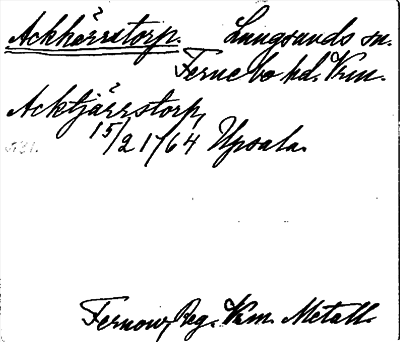 Ackkärrstorp. Lungsunds sn.
Fernebo hd. Vrm.
Acktjärrstorp,
15/2 1764 Upsala.
Fernow, Reg. Kam. Metall.